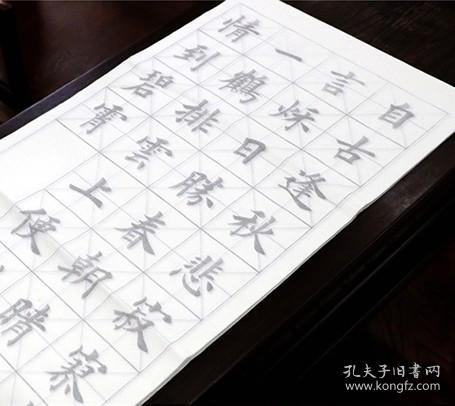 自古逢秋悲寂寮
言秌日勝春朝晴
一鶴排雲上便
情到碧霄
孔夫子旧书网
www.kongfz.com